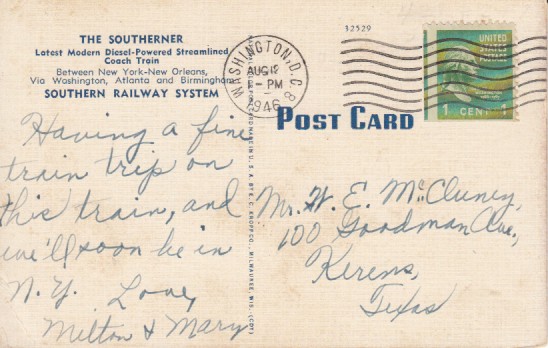 THE SOUTHERNER
Latest Modern Diesel-Powered Streamlined
Coach Train
Between New York-New Orleans,
Via Washington, Atlanta and Birmingham
SOUTHERN RAILWAY SYSTEM
32529
WASHINGTON, D.C. 8
AUG 12
PM
1946
UNITED
STATES
POSTAGE
1 CENT 1
POST CARD
Having a fine
train trip on
this train, and
we'll soon be in
N.Y. Love,
Milton & Mary
Mr. W. E. McCluney,
100 Goodman Ave.,
Kerens,
Texas